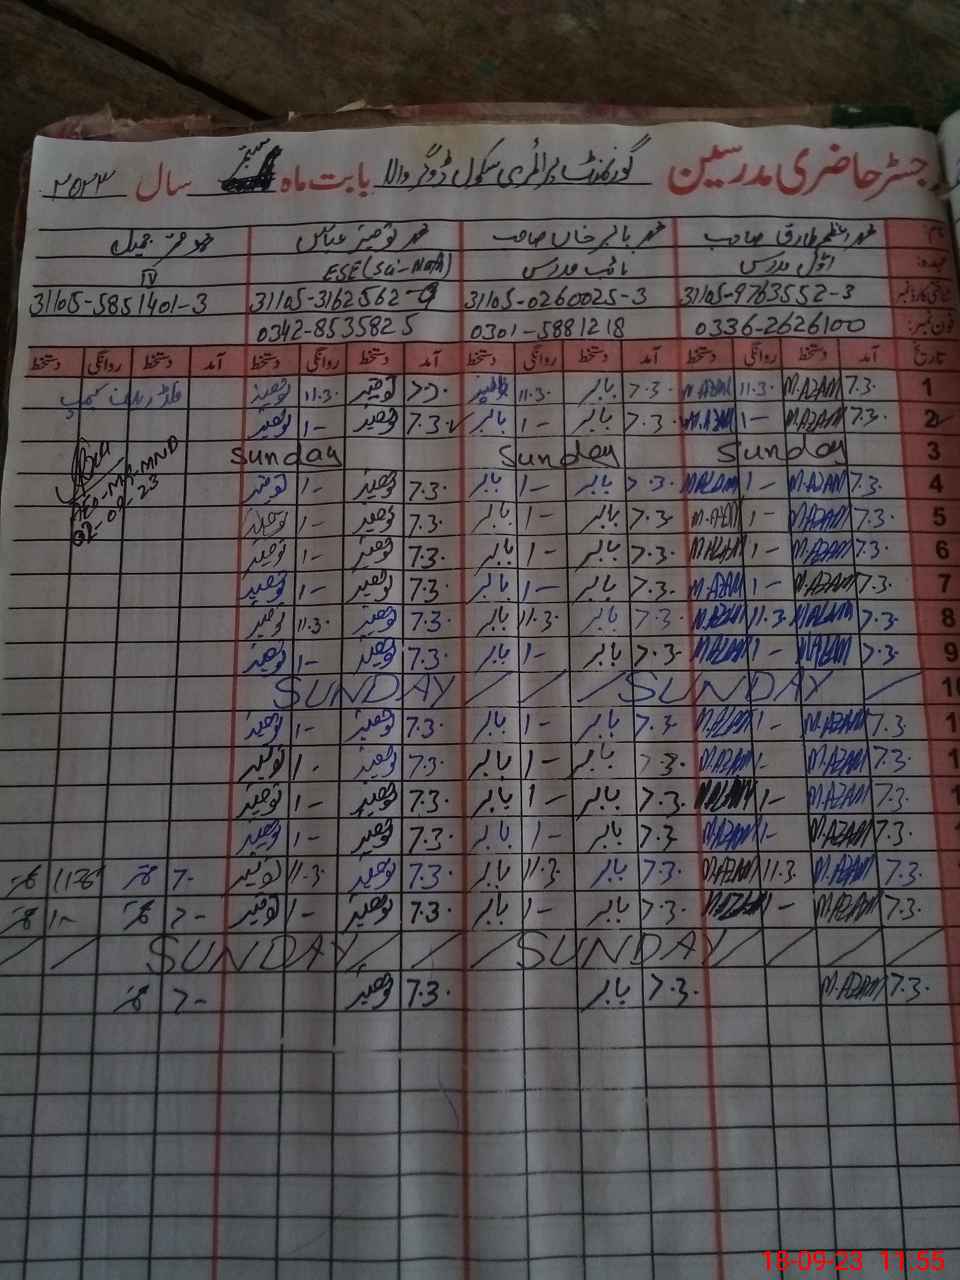 رجسٹر حاضری مدرسین گورنمنٹ پرائمری سکول ڈوگر والا بابت ماہ ستمبر سال ۲۰۲۳
نام: محمد اعظم طارق صاحب محمد بابر خاں صاحب محمد توصیف عباس محمد جمیل
عہدہ: اول مدرس نائب مدرس ESE (Sci-Math) IV
شناختی کارڈ نمبر 31105-9763552-3 31105-0260025-3 31105-3162562-9 31105-5851401-3
فون نمبر: 0336-2626100 0301-5881218 0342-8535825
تاریخ آمد دستخط روانگی دستخط آمد دستخط روانگی دستخط آمد دستخط روانگی دستخط آمد دستخط روانگی دستخط
1 7.3. M.AZAM 11.3. M.AZAM 7.3. بابر 11.3. 7.3. توصیف 11.3. توصیف فلڈ ریلیف کیمپ
2 7.3. M.AZAM 1- M.AZAM 7.3. بابر 1- بابر 7.3. توصیف 1- توصیف
3 Sunday Sunday Sunday
AEO-M-MND
02-09-23
4 7.3. M.AZAM 1- M.AZAM 7.3. بابر 1- بابر 7.3. توصیف 1- توصیف
5 7.3. M.AZAM 1- M.AZAM 7.3. بابر 1- بابر 7.3. توصیف 1- توصیف
6 7.3. M.AZAM 1- M.AZAM 7.3. بابر 1- بابر 7.3. توصیف 1- توصیف
7 7.3. M.AZAM 1- M.AZAM 7.3. بابر 1- بابر 7.3. توصیف 1- توصیف
8 7.3. M.AZAM 11.3. M.AZAM 7.3. بابر 11.3. بابر 7.3. توصیف 11.3. توصیف
9 7.3. M.AZAM 1- M.AZAM 7.3. بابر 1- بابر 7.3. توصیف 1- توصیف
10 SUNDAY SUNDAY
1 7.3. M.AZAM 1- M.AZAM 7.3. بابر 1- بابر 7.3. توصیف 1- توصیف
1 7.3. M.AZAM 1- M.AZAM 7.3. بابر 1- بابر 7.3. توصیف 1- توصیف
1 7.3. M.AZAM 1- M.AZAM 7.3. بابر 1- بابر 7.3. توصیف 1- توصیف
7.3. M.AZAM 1- M.AZAM 7.3. بابر 1- بابر 7.3. توصیف 1- توصیف
7.3. M.AZAM 11.3. M.AZAM 7.3. بابر 11.3. بابر 7.3. توصیف 11.3. توصیف 7-
7.3. M.AZAM 1- M.AZAM 7.3. بابر 1- بابر 7.3. توصیف 1- توصیف 7- 1-
SUNDAY SUNDAY
7.3. M.AZAM 7.3. بابر 7.3. توصیف 7-
18-09-23 11:55